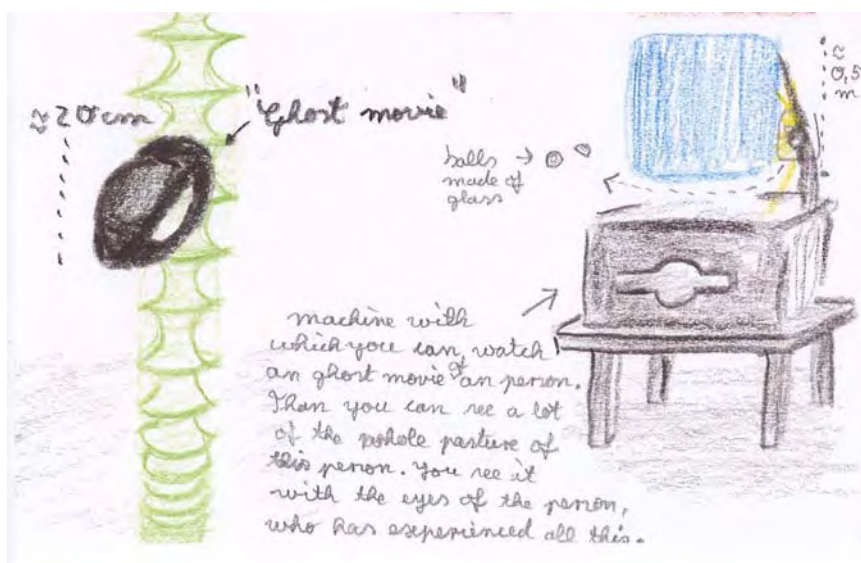 ≈ 20 cm
"Ghost movie"
≈
0,5
m
balls →
made of
glass
machine with
which you can, watch
an ghost movie of an person.
Than you can see a lot
of the whole pasture of
this person. You see it
with the eyes of the person,
who has experienced all this.